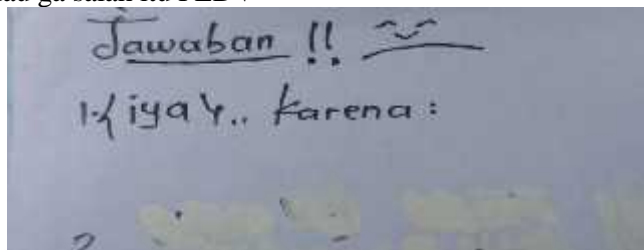 Jawaban !!
1. iya.. karena :
2